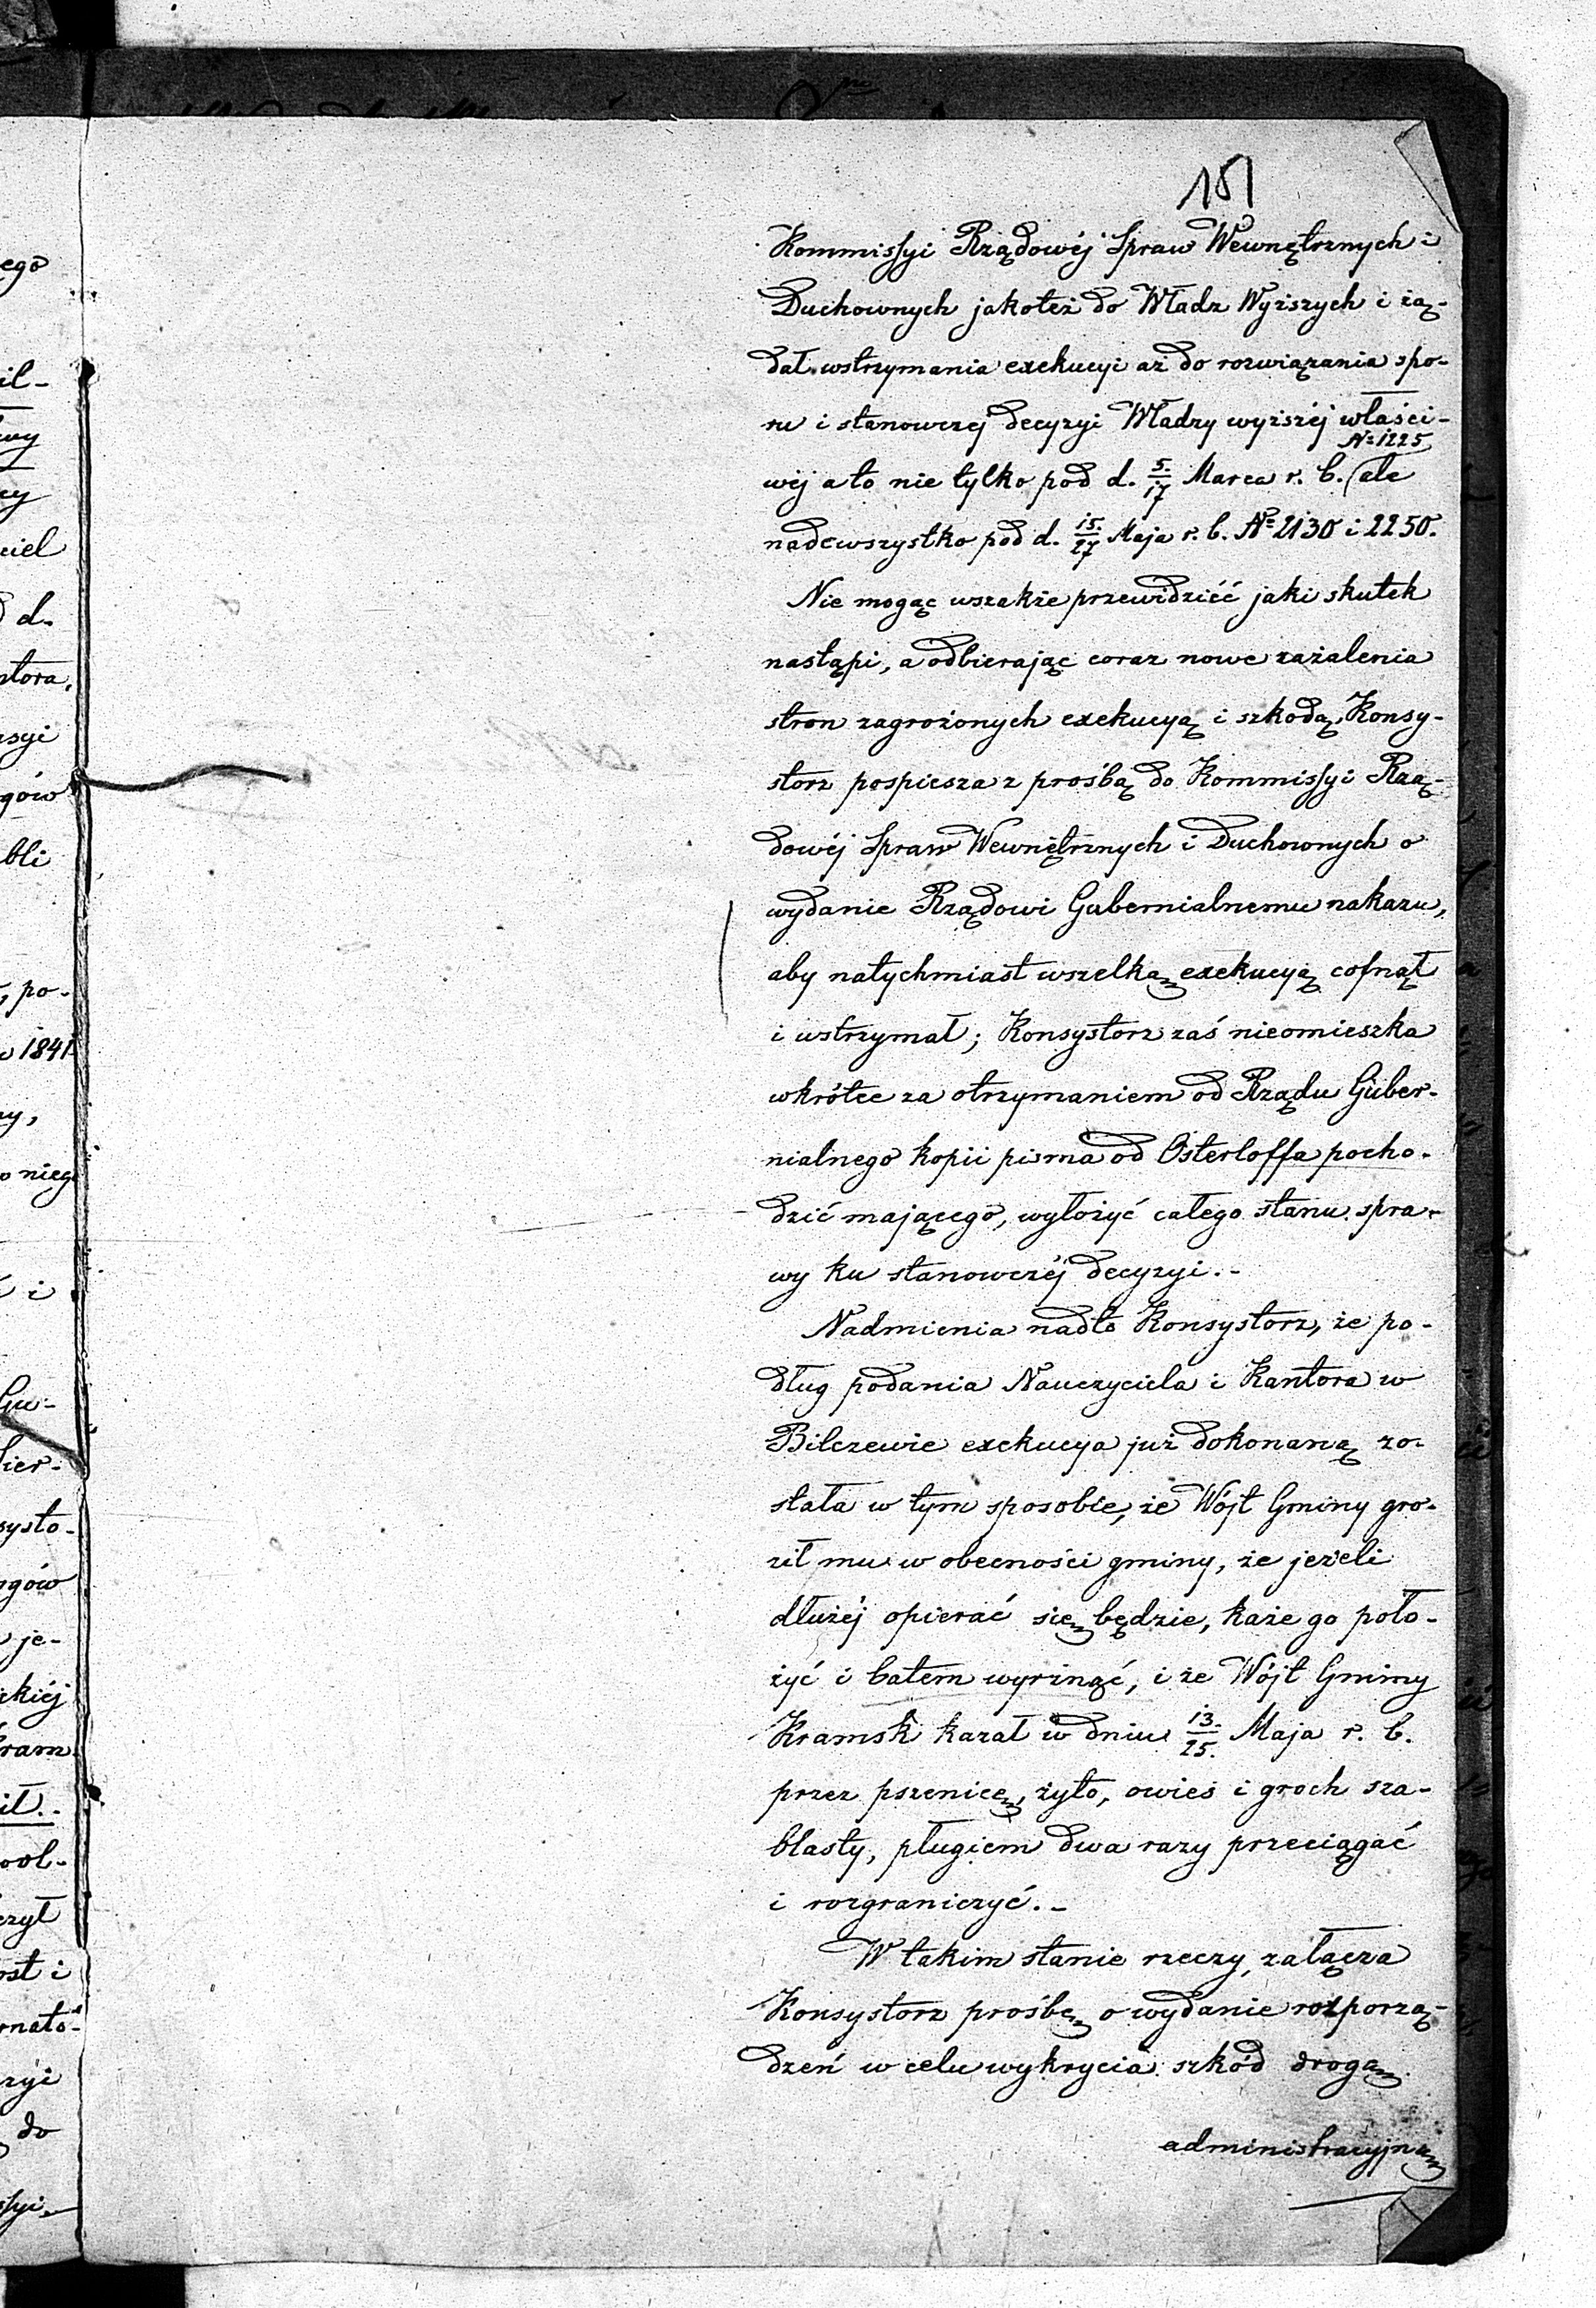 151
Kommissyi Rządowéj Spraw Wewnętrznych i
Duchownych jakoteż do Władz Wyższych i żą-
dał wstrzymania exekucyi aż do rozwiązania spo-
ru i stanowczej decyzyi Władzy wyższéj właści-
No 1225
wéj a to nie tylko pod d. 5./17 Marca r. b. (ale
nadewszystko pod d. 15./27 Maja r. b. No 2130 i 2250.
Nie mogąc wszakże przewidziéć jaki skutek
nastąpi, a odbierając coraz nowe zażalenia
stron zagrożonych exekucyą i szkodą, Konsy-
storz pospiesza z prośbą do Kommissyi Rzą-
dowéj Spraw Wewnętrznych i Duchownych o
wydanie Rządowi Gubernialnemu nakazu,
aby natychmiast wszelką exekucyą cofnął
i wstrzymał; Konsystorz zaś nieomieszka
wkrótce za otrzymaniem od Rządu Guber-
nialnego kopii pisma od Osterloffa pocho-
dzić mającego, wyłożyć całego stanu spra-
wy ku stanowczéj decyzyi.-
Nadmienia nadto Konsystorz, że po-
dług podania Nauczyciela i Kantora w
Bilczewie exekucya już dokonaną zo-
stała w tym sposobie, że Wójt Gminy gro-
ził mu w obecności gminy, że jeżeli
dłużéj opierać się będzie, każe go poło-
żyć i batem wyrznąć, i że Wójt Gminy
Kramsk kazał w dniu 13./25. Maja r. b.
przez pszenicę, żyto, owies i groch sza-
blasty, pługiem dwa razy przeciągać
i rozgraniczyć.-
W takim stanie rzeczy, załącza
Konsystorz prośbę o wydanie rozporzą-
dzeń w celu wykrycia szkód drogą
administracyjną
ego
il-
ey
ciel
d.
ntora,
syi
gów
bli
, po-
1841
y,
niego
i
Gu-
ier-
systo-
gów
je-
kiéj
Kram
ił.-
ool-
czył
ost i
rnato-
zyi
do
ssyi